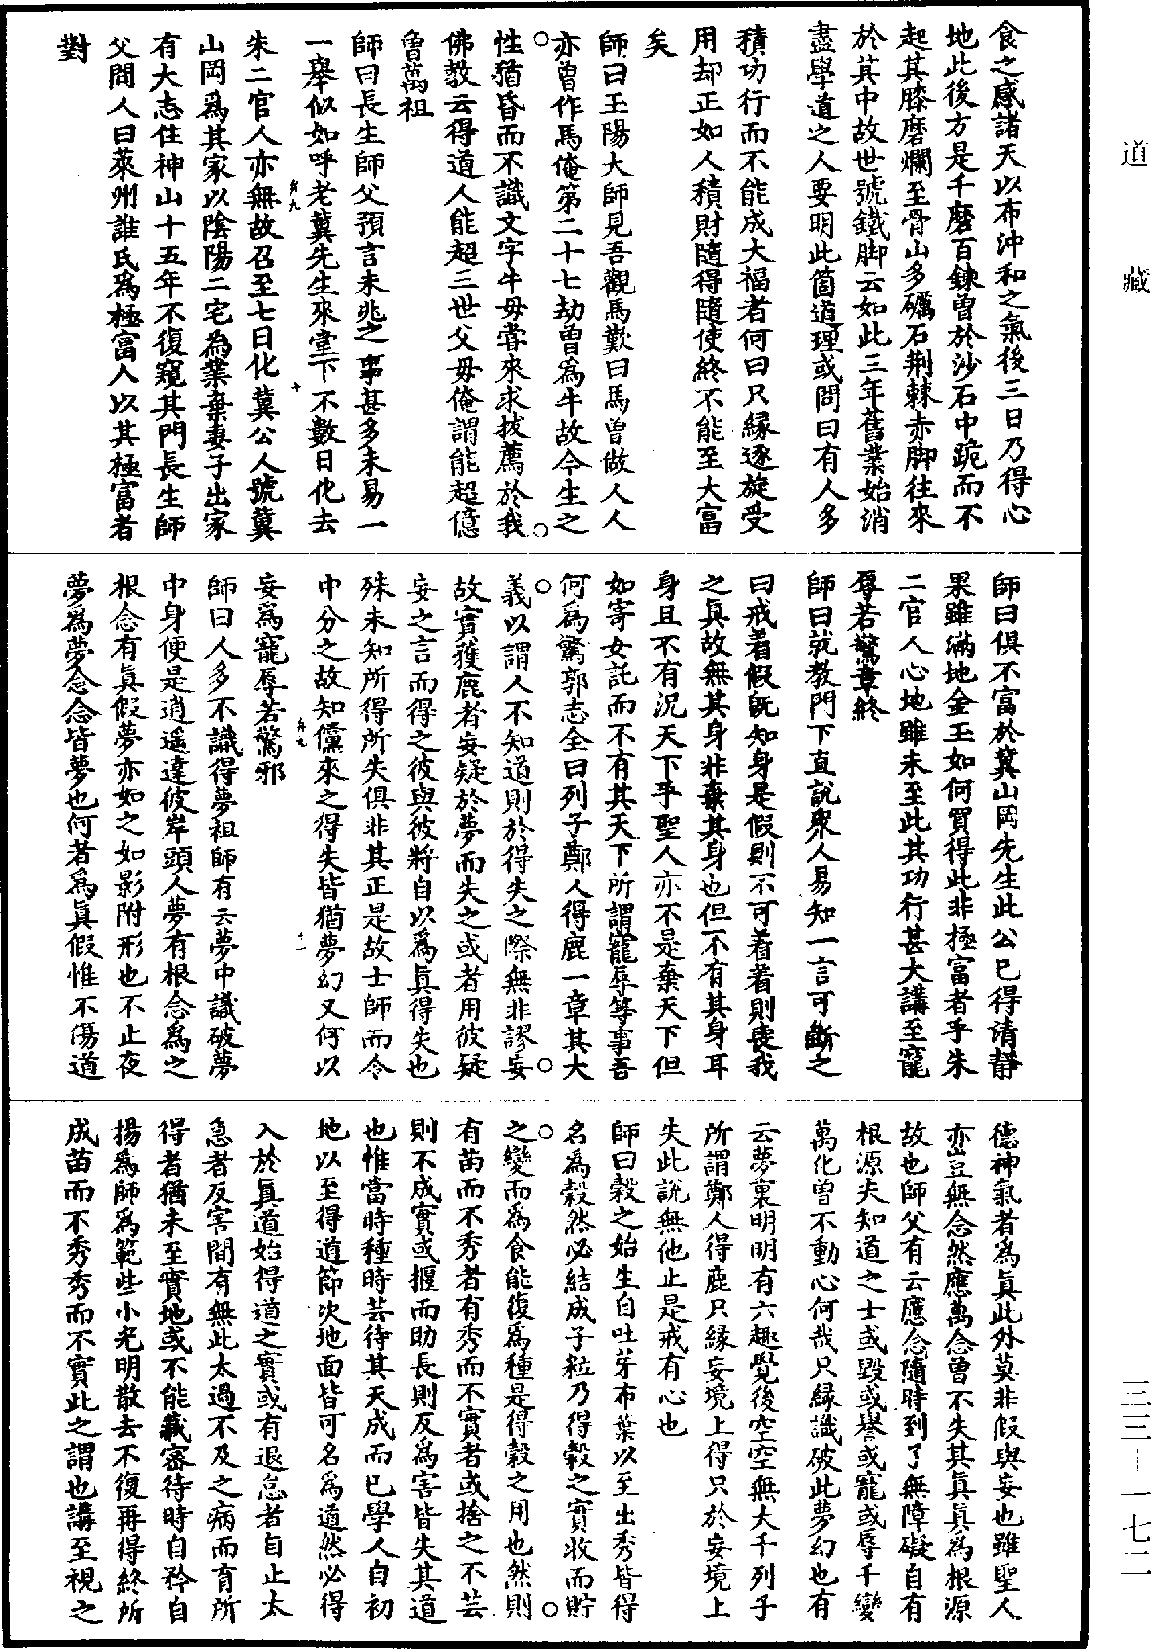 道藏
三三—一七二
食之感諸天以布沖和之氣後三日乃得心
地此後方是千磨百鍊曾於沙石中跪而不
起其膝磨爛至骨山多礪石荆棘赤脚往來
於其中故世號鐵脚云如此三年舊業始消
盡學道之人要明此箇道理或問曰有人多
積功行而不能成大福者何曰只緣逐旋受
用却正如人積財隨得隨使終不能至大富
矣
師曰玉陽大師見吾觀馬歎曰馬曾做人人
亦曾作馬俺第二十七劫曾為牛故今生之
性猶昏而不識文字牛母嘗來求拔薦於我
佛教云得道人能超三世父母俺謂能超億
魯萬祖
師曰長生師父預言未兆之事甚多未易一
一舉似如呼老冀先生來堂下不數日化去
朱二官人亦無故召至七日化冀公人號冀
山岡爲其家以陰陽二宅為業棄妻子出家
有大志住神山十五年不復窺其門長生師
父問人曰萊州誰氏爲極富人以其極富者
對
師曰俱不富於冀山岡先生此公已得清靜
果雖滿地金玉如何買得此非極富者乎朱
二官人心地雖未至此其功行甚大講至寵
辱若驚章終
師曰就教門下直說衆人易知一言可斷之
曰戒着假旣知身是假則不可着着則喪我
之眞故無其身非棄其身也但不有其身耳
身且不有況天下乎聖人亦不是棄天下但
如寄女託而不有其天下所謂寵辱等事吾
何爲驚郭志全曰列子鄭人得鹿一章其大
義以謂人不知道則於得失之際無非謬妄
故實獲鹿者妄疑於夢而失之或者用彼疑
妄之言而得之彼與彼將自以爲眞得失也
殊未知所得所失俱非其正是故士師而令
中分之故知儻來之得失皆猶夢幻又何以
妄爲寵辱若驚邪
師曰人多不識得夢祖師有云夢中識破夢
中身便是逍遥達彼岸頭人夢有根念爲之
根念有眞假夢亦如之如影附形也不止夜
夢爲夢念念皆夢也何者爲眞假惟不傷道
德神氣者為眞此外莫非假與妄也雖聖人
亦豈無念然應萬念曾不失其眞眞為根源
故也師父有云應念隨時到了無障礙自有
根源夫知道之士或毀或譽或寵或辱千變
萬化曾不動心何哉只緣識破此夢幻也有
云夢裏明明有六趣覺後空空無大千列子
所謂鄭人得鹿只緣妄境上得只於妄境上
失此說無他止是戒有心也
師曰榖之始生自吐芽布葉以至出秀皆得
名為榖然必結成子粒乃得榖之實收而貯
之變而為食能復為種是得榖之用也然則
有苗而不秀者有秀而不實者或捨之不芸
則不成實或揠而助長則反為害皆失其道
也惟當時種時芸待其天成而已學人自初
地以至得道節次地面皆可名爲道然必得
入於眞道始得道之實或有退怠者自止太
急者反害間有無此太過不及之病而有所
得者猶未至實地或不能藏審待時自矜自
揚爲師爲範些小光明散去不復再得終所
成苗而不秀秀而不實此之謂也講至視之